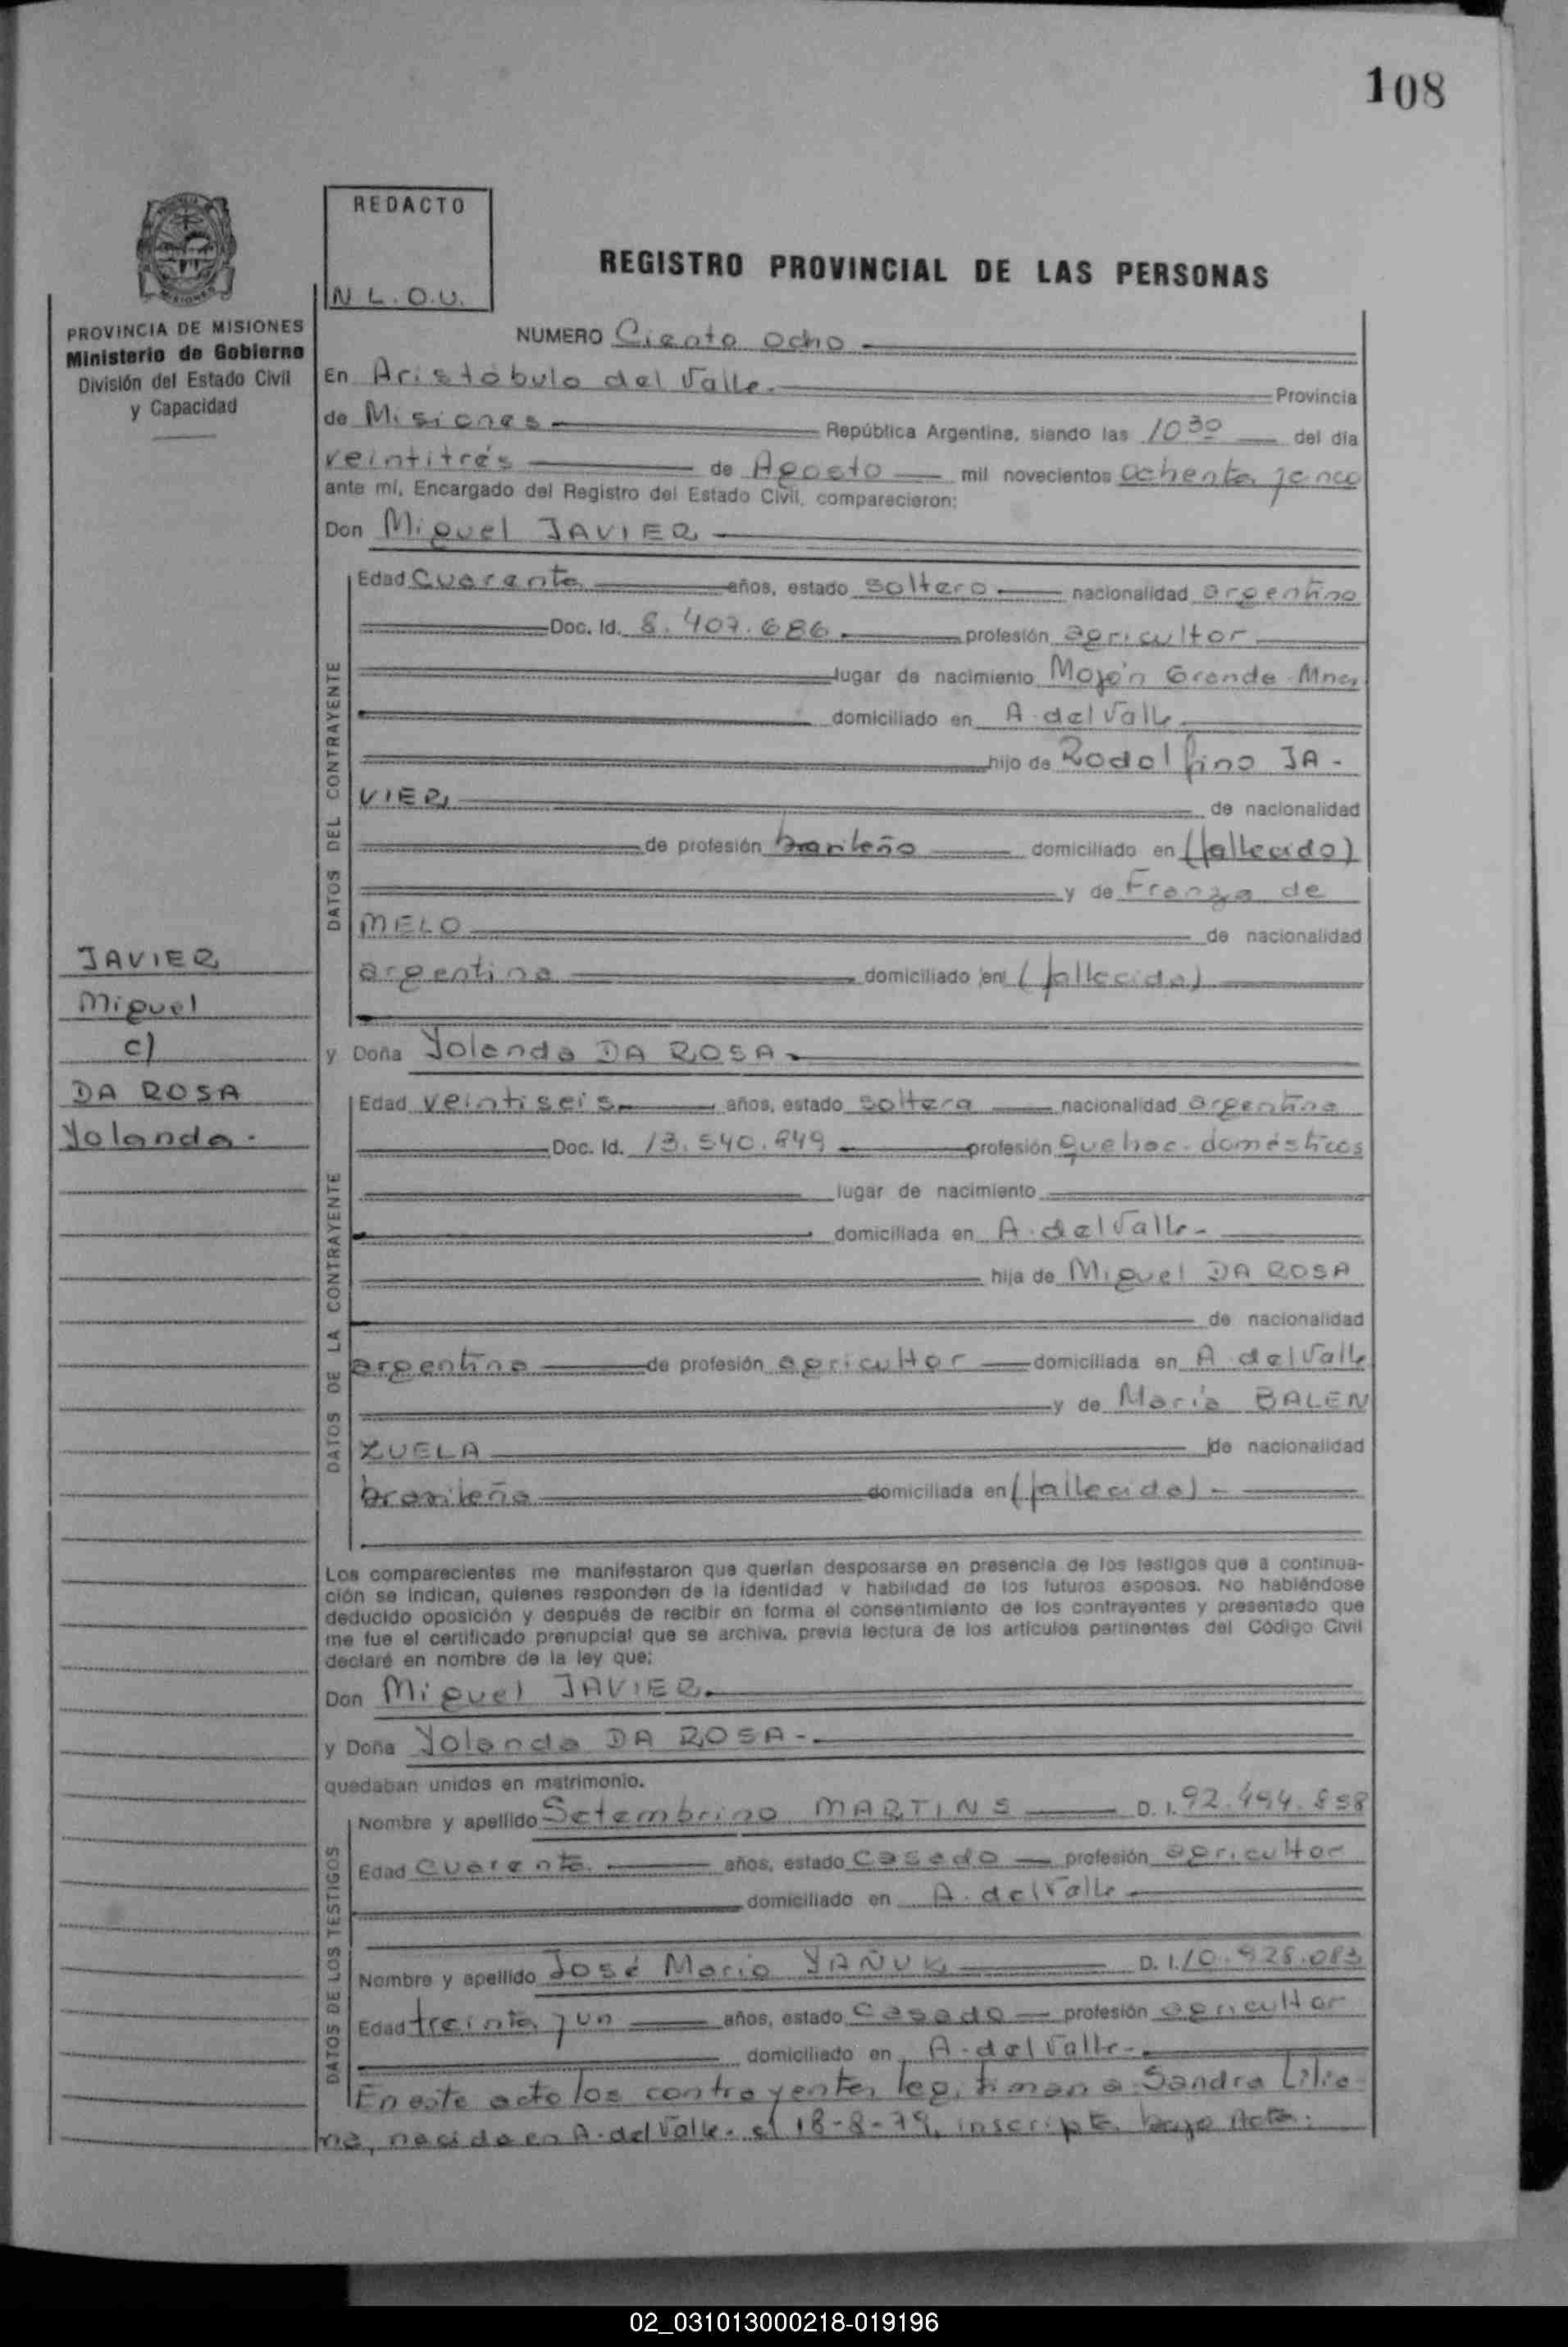 108
REDACTO
N L. O.U.
REGISTRO PROVINCIAL DE LAS PERSONAS
PROVINCIA DE MISIONES
Ministerio de Gobierno
División del Estado Civil
y Capacidad
NUMERO Ciento ocho
En Aristóbulo del Valle. Provincia
de Misiones República Argentina, siendo las 10 30 del día
veintitrés de Agosto mil novecientos ochenta y cinco
ante mí, Encargado del Registro del Estado Civil, comparecieron:
Don Miguel JAVIER
DATOS DEL CONTRAYENTE
Edad Cuarenta años, estado soltero nacionalidad argentino
Doc. Id. 8.407.686 profesión agricultor
lugar de nacimiento Mojón Grande Mnes
domiciliado en A. del Valle
hijo de Rodolfino JA-
VIER de nacionalidad
de profesión brasileño domiciliado en (fallecido)
y de Franza de
MELO de nacionalidad
argentina domiciliado en (fallecida)
JAVIER
Miguel
c/
DA ROSA
Yolanda.
y Doña Yolanda DA ROSA
DATOS DE LA CONTRAYENTE
Edad veintiseis años, estado soltera nacionalidad argentina
Doc. Id. 13.540.849 profesión quehac. domésticos
lugar de nacimiento
domiciliada en A. del Valle
hija de Miguel DA ROSA
de nacionalidad
argentino de profesión agricultor domiciliada en A del Valle
y de María BALEN
ZUELA de nacionalidad
brasileña domiciliada en (fallecida)
Los comparecientes me manifestaron que querían desposarse en presencia de los testigos que a continua-
ción se indican, quienes responden de la identidad y habilidad de los futuros esposos. No habiéndose
deducido oposición y después de recibir en forma el consentimiento de los contrayentes y presentado que
me fue el certificado prenupcial que se archiva, previa lectura de los artículos pertinentes del Código Civil
declaré en nombre de la ley que:
Don Miguel JAVIER.
y Doña Yolanda DA ROSA -
quedaban unidos en matrimonio.
DATOS DE LOS TESTIGOS
Nombre y apellido Setembrino MARTINS D. I. 92.494.858
Edad Cuarenta años, estado Casado profesión agricultor
domiciliado en A. del Valle
Nombre y apellido José Mario YAÑUK D. I. 10.928.083
Edad treinta y un años, estado Casado profesión agricultor
domiciliado en A. del Valle.
En este acto los contrayentes legitiman a Sandra Lilia-
na, nacida en A. del Valle. el 18-8-79, inscripta bajo Acta:
02_031013000218-019196